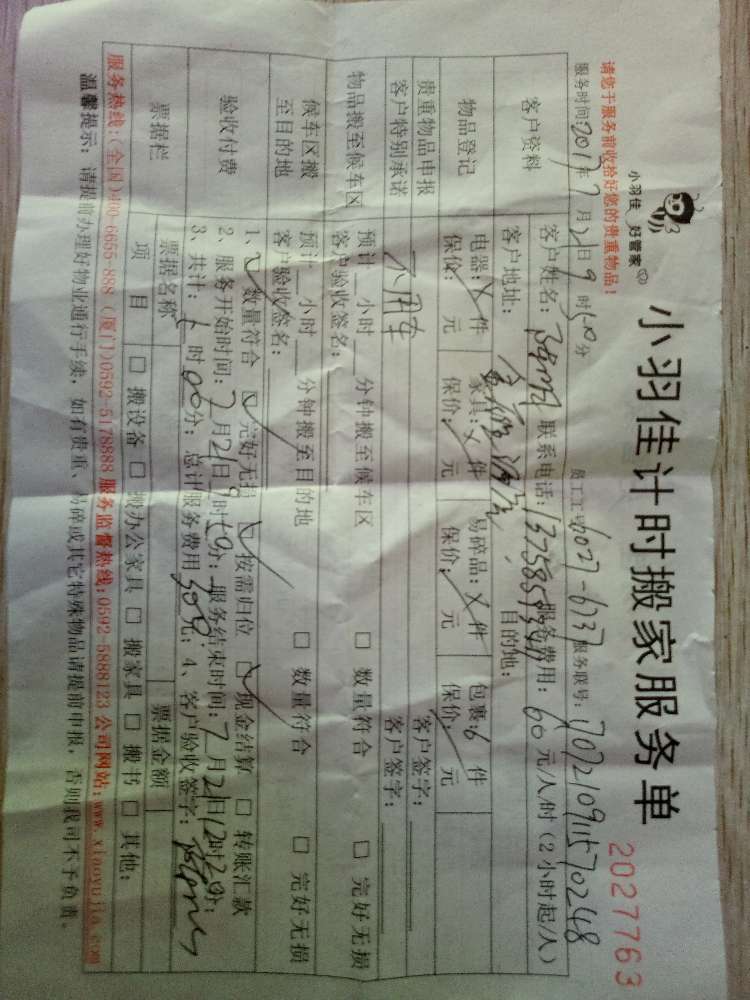 小羽佳 好管家
小羽佳计时搬家服务单
2027763
请您于服务前收拾好您的贵重物品!
服务时间:2017年7月21日9时 分 员工工号 6027-6737 服务联号:
客户资料 客户姓名: 联系电话: 服务费用:60元/人/时(2小时起/人)
客户地址: 目的地:
物品登记 电器: 件 家具: 件 易碎品: 件 包裹:6件
保价: 元 保价: 元 保价: 元 保价: 元
贵重物品申报 客户签字:
客户特别承诺 不用车 客户签字:
物品搬至候车区 预计 小时 分钟搬至候车区 □ 数量符合 □ 完好无损
客户验收签名:
候车区搬至目的地 预计 小时 分钟搬至目的地 □ 数量符合 □ 完好无损
客户验收签名:
验收付费 1、☑ 数量符合 ☑ 完好无损 ☑ 按需归位 ☑ 现金结算 □ 转账汇款
2、服务开始时间:7月21日9时 分;服务结束时间:7月21日12时20分;
3、共计: 时00分;总计服务费用 元;4、客户验收签字:
票据栏 票据名称 票据金额
项目 □ 搬设备 □ 搬办公家具 □ 搬家具 □ 搬书 □ 其他:
服务热线:(全国)400-6655-888 (厦门)0592-5178888 服务监督热线:0592-5888123 公司网站:www.xiaoyujia.com
温馨提示:请提前办理好物业通行手续,如有贵重、易碎或其它特殊物品请提前申报,否则我司不予负责。